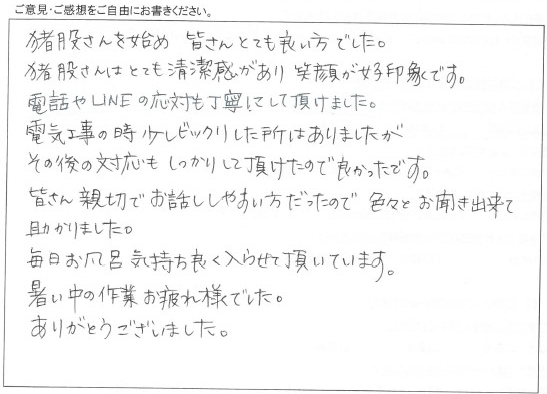 ご意見・ご感想をご自由にお書きください。
猪股さんを始め 皆さんとても良い方でした。
猪股さんはとても清潔感があり 笑顔が好印象です。
電話やLINEの応対も丁寧にして頂けました。
電気工事の時 少しビックリした所はありましたが
その後の対応も しっかりして頂けたので良かったです。
皆さん 親切で お話ししやすい方だったので 色々と お聞き出来て
助かりました。
毎日お風呂 気持ち良く入らせて頂いています。
暑い中の作業 お疲れ様でした。
ありがとうございました。